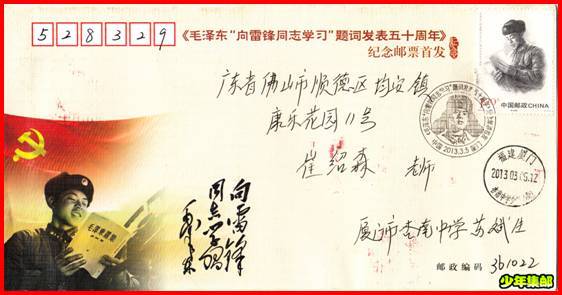 528329
《毛泽东“向雷锋同志学习”题词发表五十周年》
纪念邮票首发
中国邮政CHINA
广东省佛山市顺德区均安镇
康乐花园11号
崔绍森 老师
中国 2013.3.5 厦门
福建厦门
2013.03.05.12
毛泽东选集
向雷锋
同志学习
毛泽东
厦门市杏南中学 苏斌生
邮政编码 361022
少年集邮